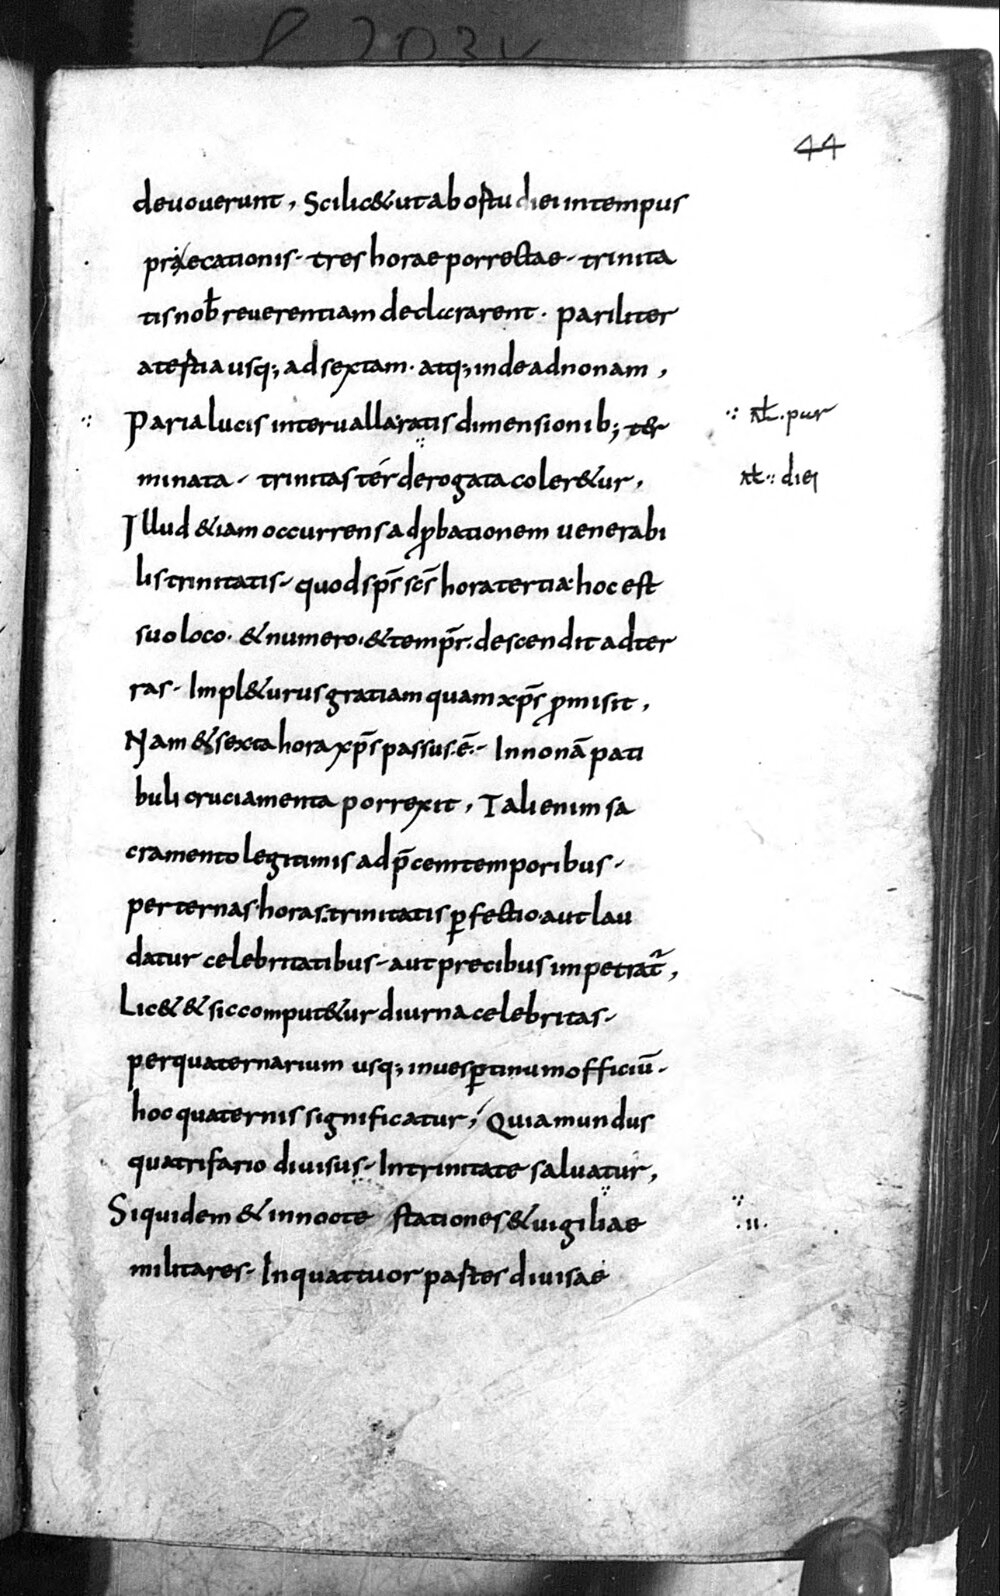 44
deuouerunt, Scilic& ut ab ostu diei in tempus
praecationis- tres horae porrectae- trinita
tis nob̅ reuerentiam declararent. pariliter
a tertia usq; ad sextam. atq; inde ad nonam,
Paria lucis interualla ratis dimensionib; t&r
minata- trinitas tér derogata coler&ur,
Illud &iam occurrens ad ꝓbationem uenerabi
lis trinitatis- quod sp̅s sc̅s hora tertia hoc est
suo loco. & numero. & temp̅r. descendit ad ter
ras- Impl&urus gratiam quam xp̅s ꝓmisit,
Nam & sexta hora xp̅s passus.e̅.- In nonā pati
buli cruciamenta porrexit, Tali enim sa
cramento legitimis ad p̅cem temporibus-
per ternas horas. trinitatis ꝑfectio. aut lau
datur celebritatibus- aut precibus impetrat̃,
Lic& & sic comput&ur diurna celebritas-
per quaternarium usq; in uesꝑtinum officiū-
hoc quaternis significatur, Quia mundus
quatrifario diuisus- In trinitate saluatur,
Siquidem & in nocte stationes & uigiliae
militares- In quattuor partes diuisae
∵ aƚ. pur
aƚ ∵ diei
.ii.